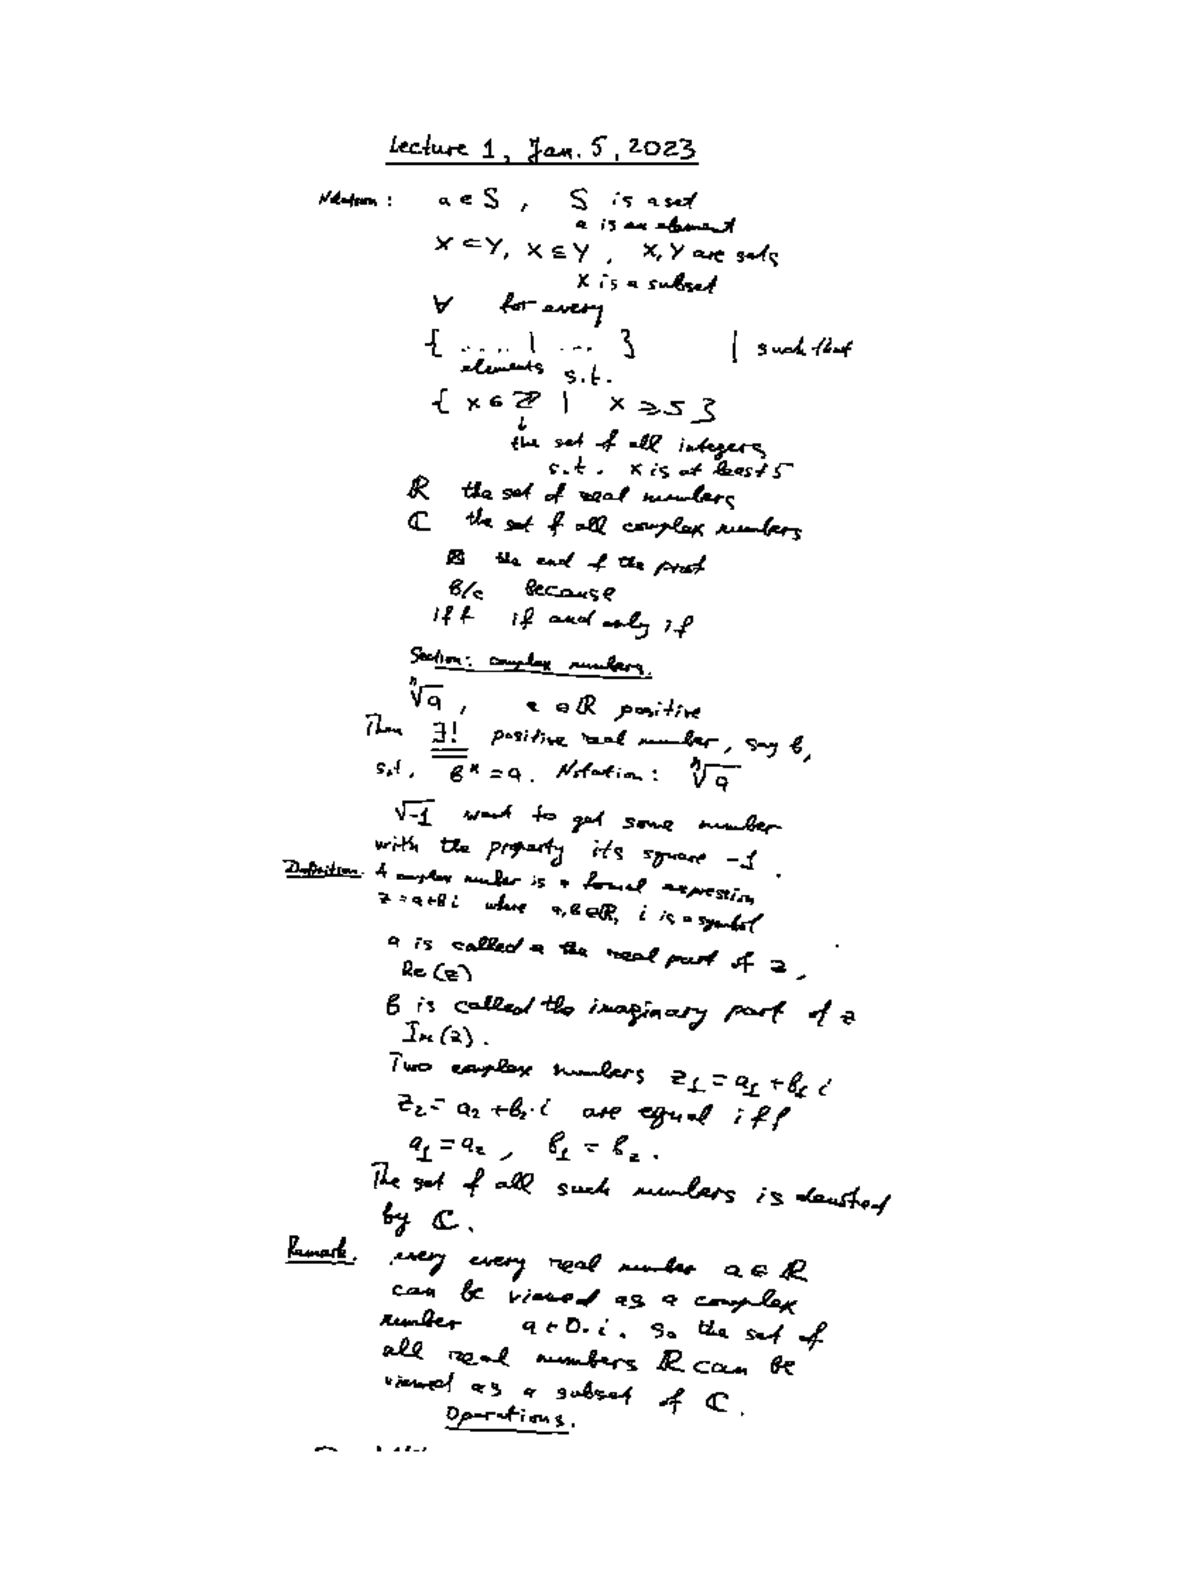 Lecture 1, Jan. 5, 2023
Notation: a ∈ S, S is a set
a is an element
X ⊂ Y, X ⊆ Y, X, Y are sets
X is a subset
∀ for every
{ .... | ... } | such that
elements s.t.
{ x ∈ ℤ | x ⩾ 5 }
↓
the set of all integers
s.t. x is at least 5
ℝ the set of real numbers
ℂ the set of all complex numbers
⊠ the end of the proof
b/c because
iff if and only if
Section: complex numbers.
ⁿ√a, a ∈ ℝ positive
Then ∃! positive real number, say b,
s.t. bⁿ = a. Notation: ⁿ√a
√-1 want to get some number
with the property its square -1.
Definition. A complex number is a formal expression
z = a+bi where a, b ∈ ℝ, i is a symbol
a is called the real part of z,
Re(z)
b is called the imaginary part of z
Im(z).
Two complex numbers z₁ = a₁ + b₁ i
z₂ = a₂ + b₂·i are equal iff
a₁ = a₂, b₁ = b₂.
The set of all such numbers is denoted
by ℂ.
Remark. every every real number a ∈ ℝ
can be viewed as a complex
number a + 0·i. So the set of
all real numbers ℝ can be
viewed as a subset of ℂ.
Operations.